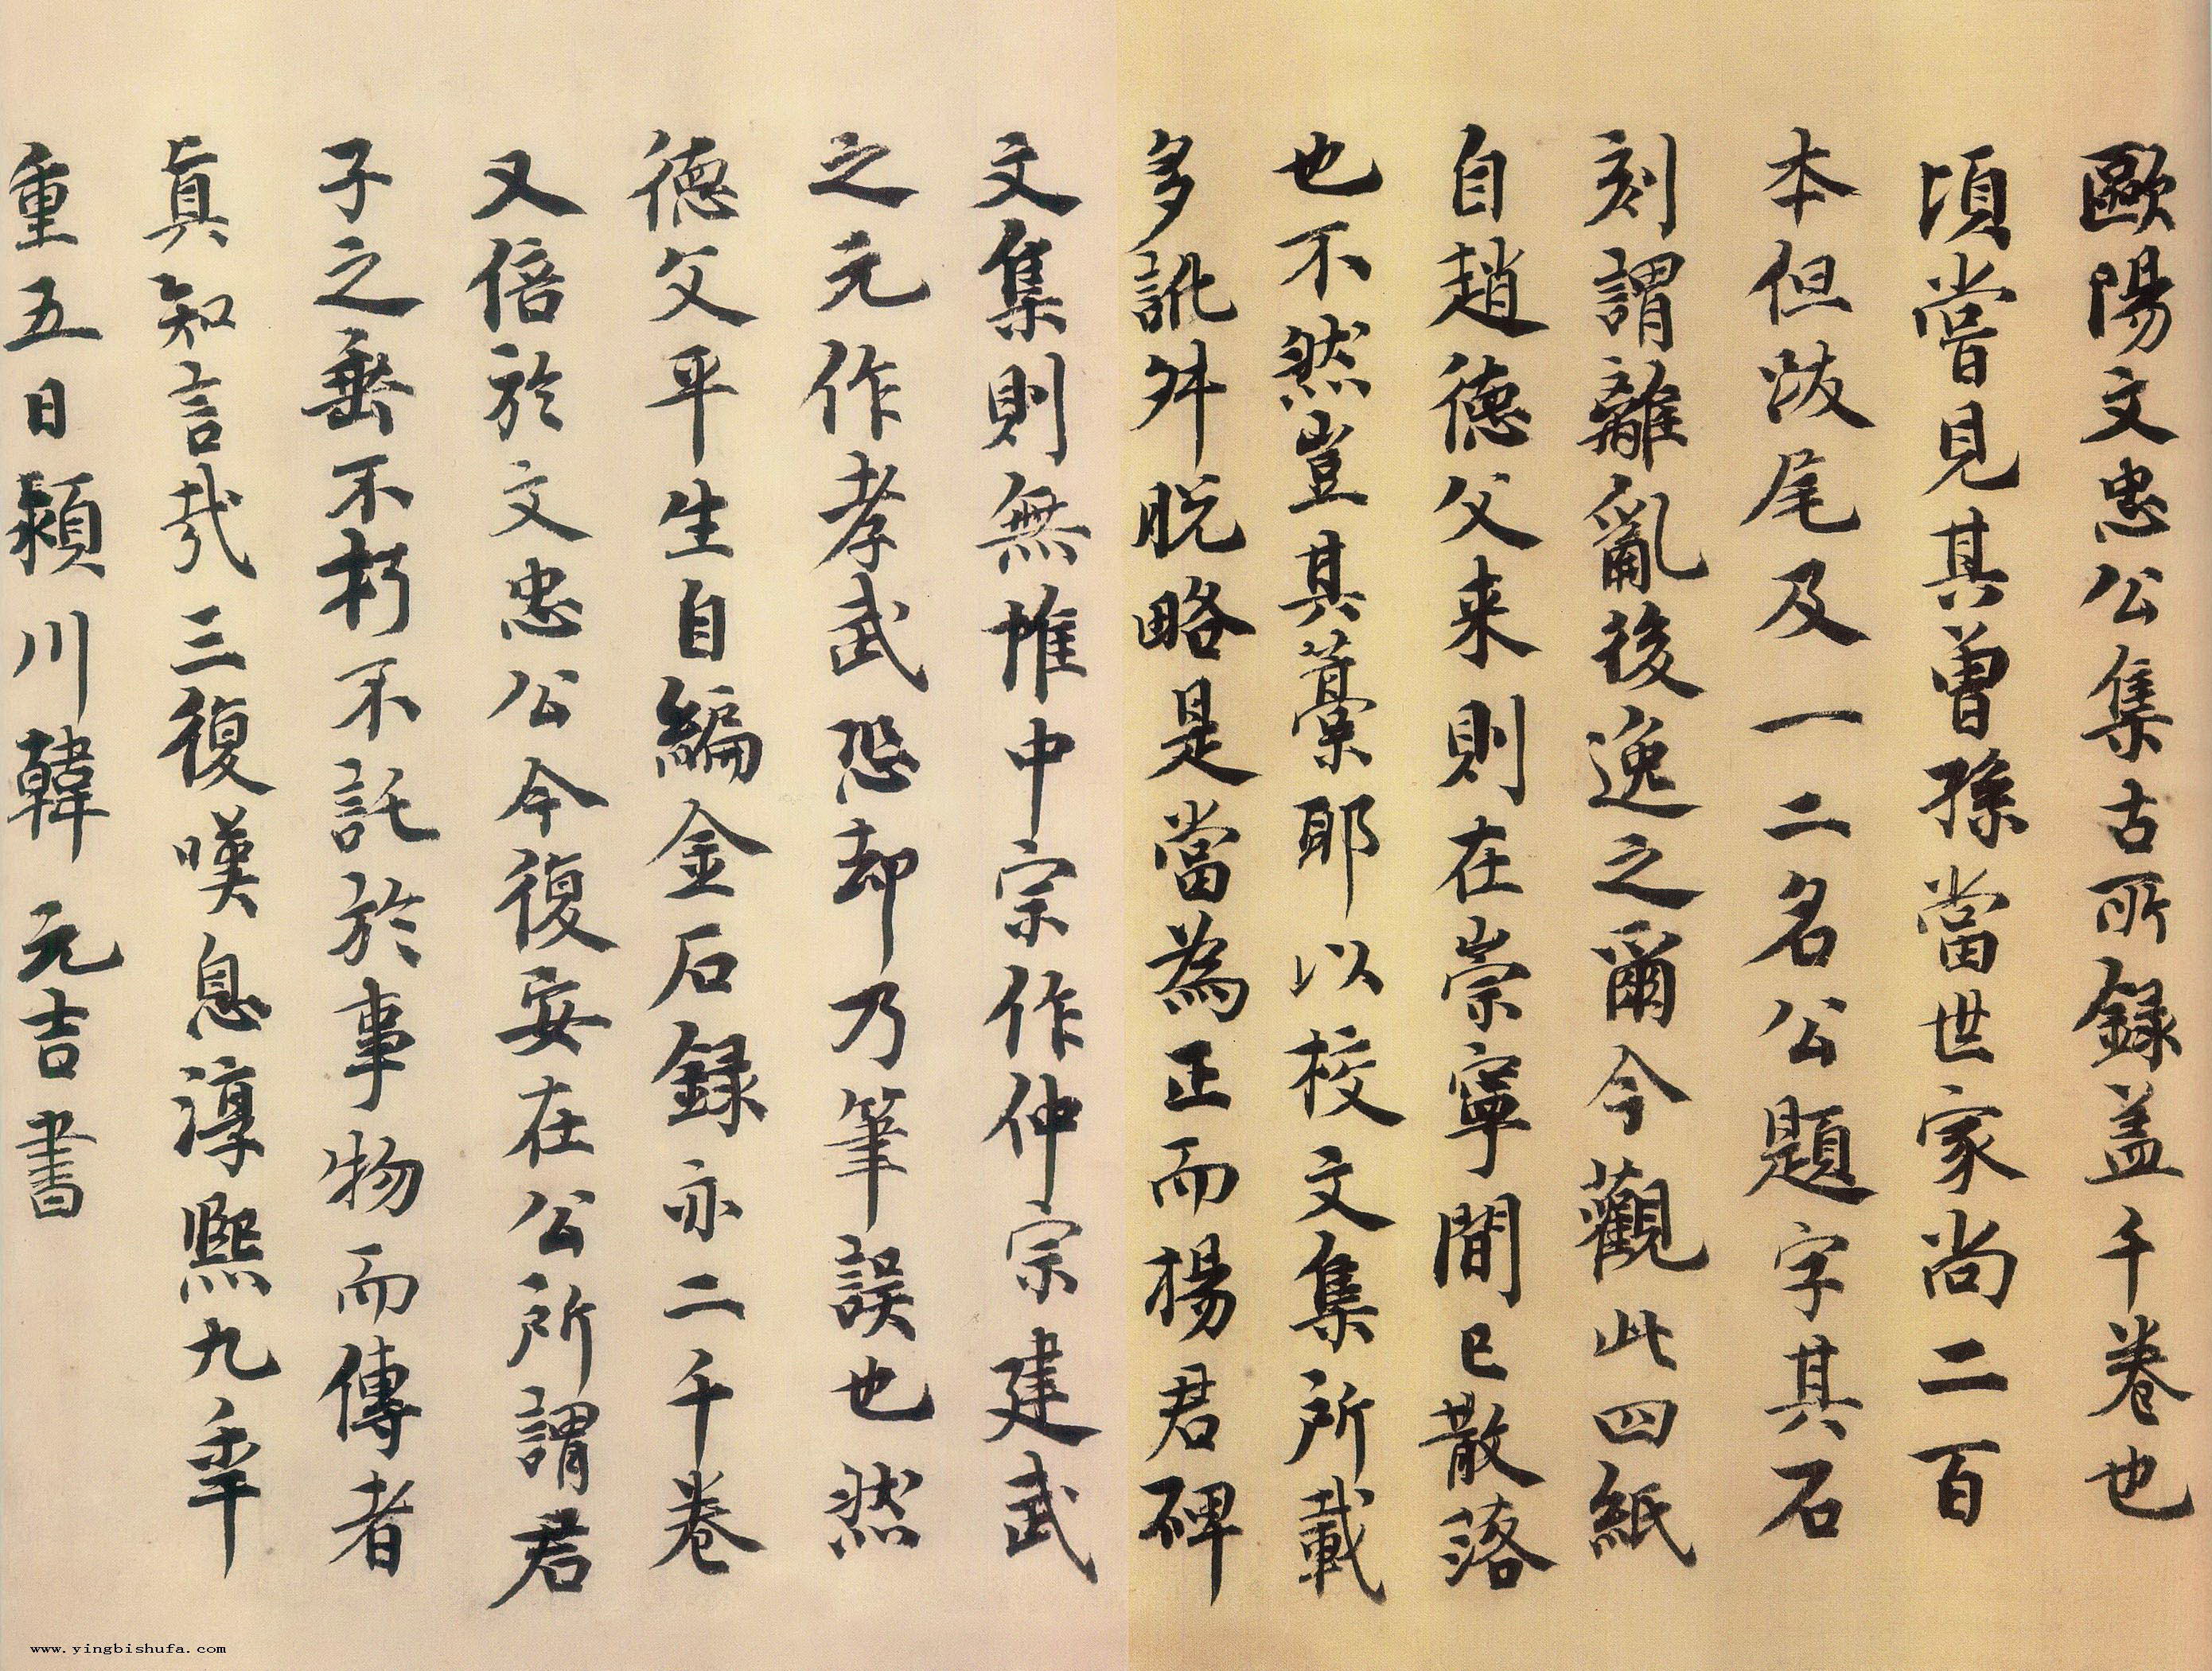 歐陽文忠公集古所録盖千卷也
頃嘗見其曾孫當世家尚二百
本但跋尾及一二名公題字其石
刻謂離亂後逸之爾今觀此四紙
自趙德父来則在崇寧間已散落
也不然豈其藁耶以校文集所載
多訛舛脱略是當為正而楊君碑
文集則無惟中宗作仲宗建武
之元作孝武恐却乃筆誤也然
德父平生自編金石録亦二千卷
又倍於文忠公今復安在公所謂君
子之垂不朽不託於事物而傳者
眞知言哉三復嘆息淳熙九年
重五日潁川韓元吉書
www.yingbishufa.com